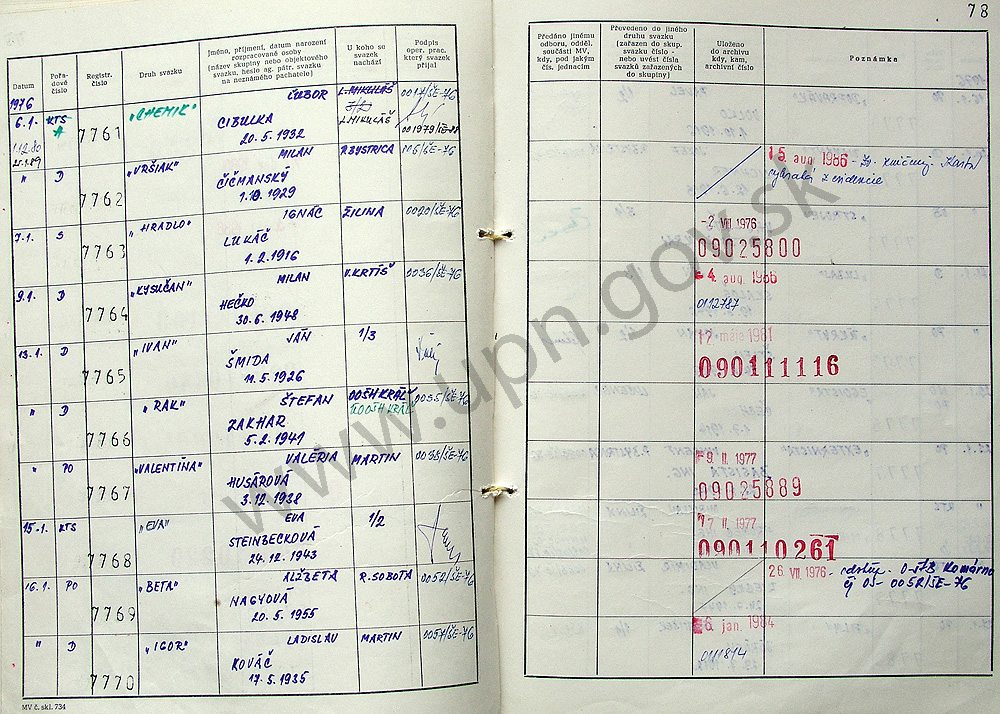 78
Datum
Pořadové číslo
Registr. číslo
Druh svazku
Jméno, příjmení, datum narození
rozpracované osoby
(název skupiny nebo objektového
svazku, heslo ag. pátr. svazku
na neznámého pachatele)
U koho se
svazek
nachází
Podpis
oper. prac.
který svazek
přijal
Předáno jinému
odboru, odděl.
součásti MV,
kdy, pod jakým
čís. jednacím
Převedeno do jiného
druhu svazku
(zařazen do skup.
svazku číslo -
nebo uvést čísla
svazků zařazených
do skupiny)
Uloženo
do archivu
kdy, kam,
archivní číslo
Poznámka
1976
6.1. KTS 7761 "CHEMIK" ĽUBOR L.MIKULÁŠ 0017/ŠE-76
A CIBULKA L.MIKULÁŠ
20.5.1932
" D 7762 "VRŠIAK" MILAN P.BYSTRICA 116/ŠE-76 15. aug 1986
ČIČMANSKÝ
1.10.1929
7.1. S 7763 "HRADLO" IGNÁC ŽILINA 0020/ŠE-76 -2. VII 1976
LUKÁČ 09025800
1.2.1916
9.1. D 7764 "KYSUČAN" MILAN V.KRTÍŠ 0036/ŠE-76 -4. aug 1986
HEČKO 0112787
30.6.1948
13.1. D 7765 "IVAN" JÁN 1/3 12 mája 1981
ŠMIDA 090111116
11.5.1926
" D 7766 "RAK" ŠTEFAN OOŠH KRÁĽ 0035/ŠE-76
ZAKHAR
5.2.1941
" PO 7767 "VALENTÍNA" VALÉRIA MARTIN 0038/ŠE-76 9. II. 1977
HUSÁROVÁ 09025889
3.12.1938
15.1. KTS 7768 "EVA" EVA 1/2 17 II. 1977
STEINBECKOVÁ 090110261
24.12.1943
16.1. PO 7769 "BETA" ALŽBETA R.SOBOTA 0052/ŠE-76 26. VII. 1976 - odstúp. O-ŠtB Komárno
NAGYOVÁ čj OS-0052/ŠE-76
20.5.1955
" D 7770 "IGOR" LADISLAV MARTIN 0057/ŠE-76 6. jan. 1984
KOVÁČ
17.5.1935
MV č. skl. 734
www.upn.gov.sk